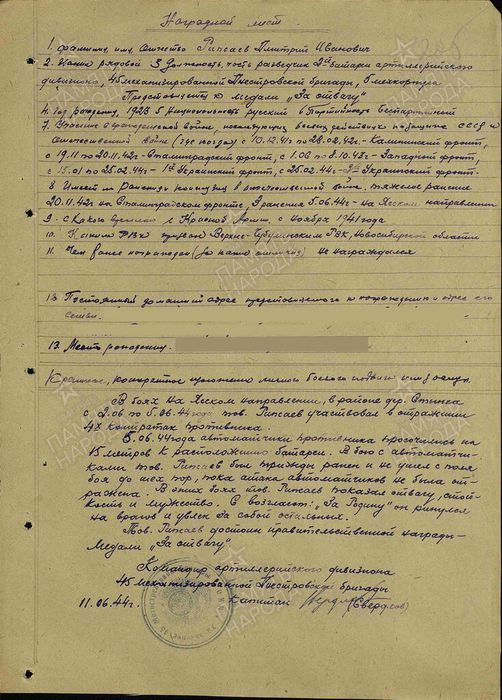 Наградной лист.
1. Фамилия, имя, отчество Рипаев Дмитрий Иванович
2. Звание рядовой 3. Должность, часть разведчик 2й батареи артиллерийского
дивизиона, 45 механизированной Днестровской бригады, 5 мехкорпуса
Представляется к медали "За отвагу"
4. Год рождения, 1923 5. Национальность русский 6 Партийность беспартийный
7. Участие в гражданской войне, последующих боевых действиях по защите СССР и
отечественной войне (где, когда) с 10.12.41 по 28.02.42г.- Калининский фронт,
с 19.11 по 20.11.42г.- Сталинградский фронт, с 1.06 по 8.10.43г.- Западной фронт,
с 15.01 по 25.02.44г- 1й Украинский фронт, с 25.02.44г- 2й Украинский фронт.
8. Имеет ли ранения и контузии в отечественной войне, тяжелое ранение
20.11.42г на Сталинградском фронте, 3 ранения 5.06.44г- на Ясском направлении
9. С какого времени в Красной Армии, с ноября 1941 года
10. Каким РВК призван РВК, Новосибирской области
11. Чем ранее награжден (за какие отличия) не награждался
13. Постоянный домашний адрес представляемого к награждению и адрес его
семьи.
13. Место рождения.
Краткое, конкретное изложение личного боевого подвига или заслуг.
В боях на Ясском направлении, в районе дер.
с 2.06 по 5.06.44 года тов. Рипаев участвовал в отражении
4х контратак противника.
5.06.44 года автоматчики противника просочились на
15 метров к расположению батареи. В бою с автоматчи-
ками тов. Рипаев был трижды ранен и не ушел с поля
боя до тех пор, пока атака автоматчиков не была от-
ражена. В этих боях тов. Рипаев показал отвагу, стой-
кость и мужество. С возгласом: "За Родину" он ринулся
на врагов и увлек за собой остальных.
Тов. Рипаев достоин правительственной награды-
Медали "За отвагу"
Командир артиллерийского дивизиона
45 механизированной Днестровской бригады
11.06.44г. Капитан (Свердлов)
ПАМЯТЬ НАРОДА